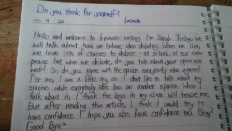 Do you think for yourself?
Hello and welcome to 5 minute writing. I'm Sandy. Today we
will talk about how we before when debating. When we live,
we have lots of chances to debate at school, at our com-
panies. But when our debate, do you talk about your opinion
well? Or do you agree with the opinion everybody else agrees?
For me, I was a little shy so I don't like to talk about my
opinion while everybody else has an another opinion. When I
talk about it, I think the boys in my class will tease me.
But after reading this article, I think I would try to
have confidence. I hope you also have confidence too. Okay?
Good Bye~